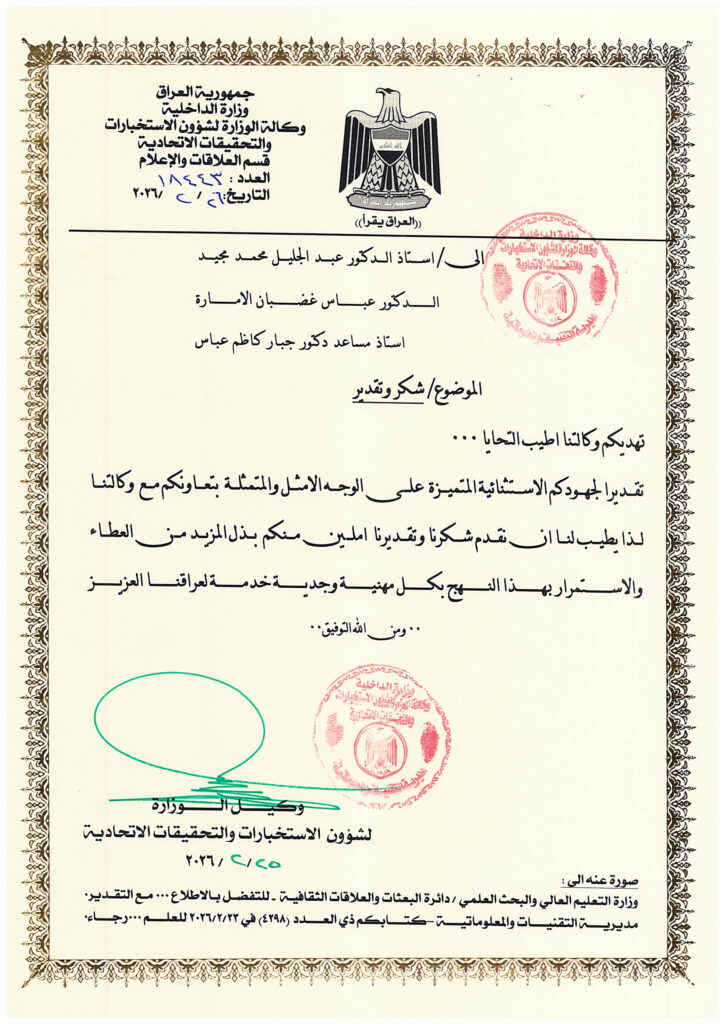 جمهورية العراق
وزارة الداخلية
وكالة الوزارة لشؤون الاستخبارات
والتحقيقات الاتحادية
قسم العلاقات والإعلام
العدد : ١٨٤٤٣
التاريخ: ٢٦ / ٢ / ٢٠٢٦
الله اكبر
جمهورية العراق
((العراق يقرأ))
وزارة الداخلية
وكالة الوزارة لشؤون الاستخبارات
والتحقيقات الاتحادية
مديرية التقنيات والمعلوماتية
الى / استاذ الدكتور عبد الجليل محمد مجيد
الدكتور عباس غضبان الامارة
استاذ مساعد دكتور جبار كاظم عباس
الموضوع / شكر وتقدير
تهديكم وكالتنا اطيب التحايا ...
تقديرا لجهودكم الاستثنائية المتميزة على الوجه الامثل والمتمثلة بتعاونكم مع وكالتنا
لذا يطيب لنا ان نقدم شكرنا وتقديرنا املين منكم بذل المزيد من العطاء
والاستمرار بهذا النهج بكل مهنية وجدية خدمة لعراقنا العزيز
.. ومن الله التوفيق ..
وزارة الداخلية
وكالة الوزارة لشؤون الاستخبارات
والتحقيقات الاتحادية
مديرية التقنيات والمعلوماتية
وكيل الوزارة
لشؤون الاستخبارات والتحقيقات الاتحادية
٢٥ / ٢ / ٢٠٢٦
صورة عنه الى :
وزارة التعليم العالي والبحث العلمي / دائرة البعثات والعلاقات الثقافية ـ للتفضل بالاطلاع ... مع التقدير.
مديرية التقنيات والمعلوماتية –كتابكم ذي العدد (٤٢٩٨) في ٢٠٢٦/٢/٢٣ للعلم ... رجاء.